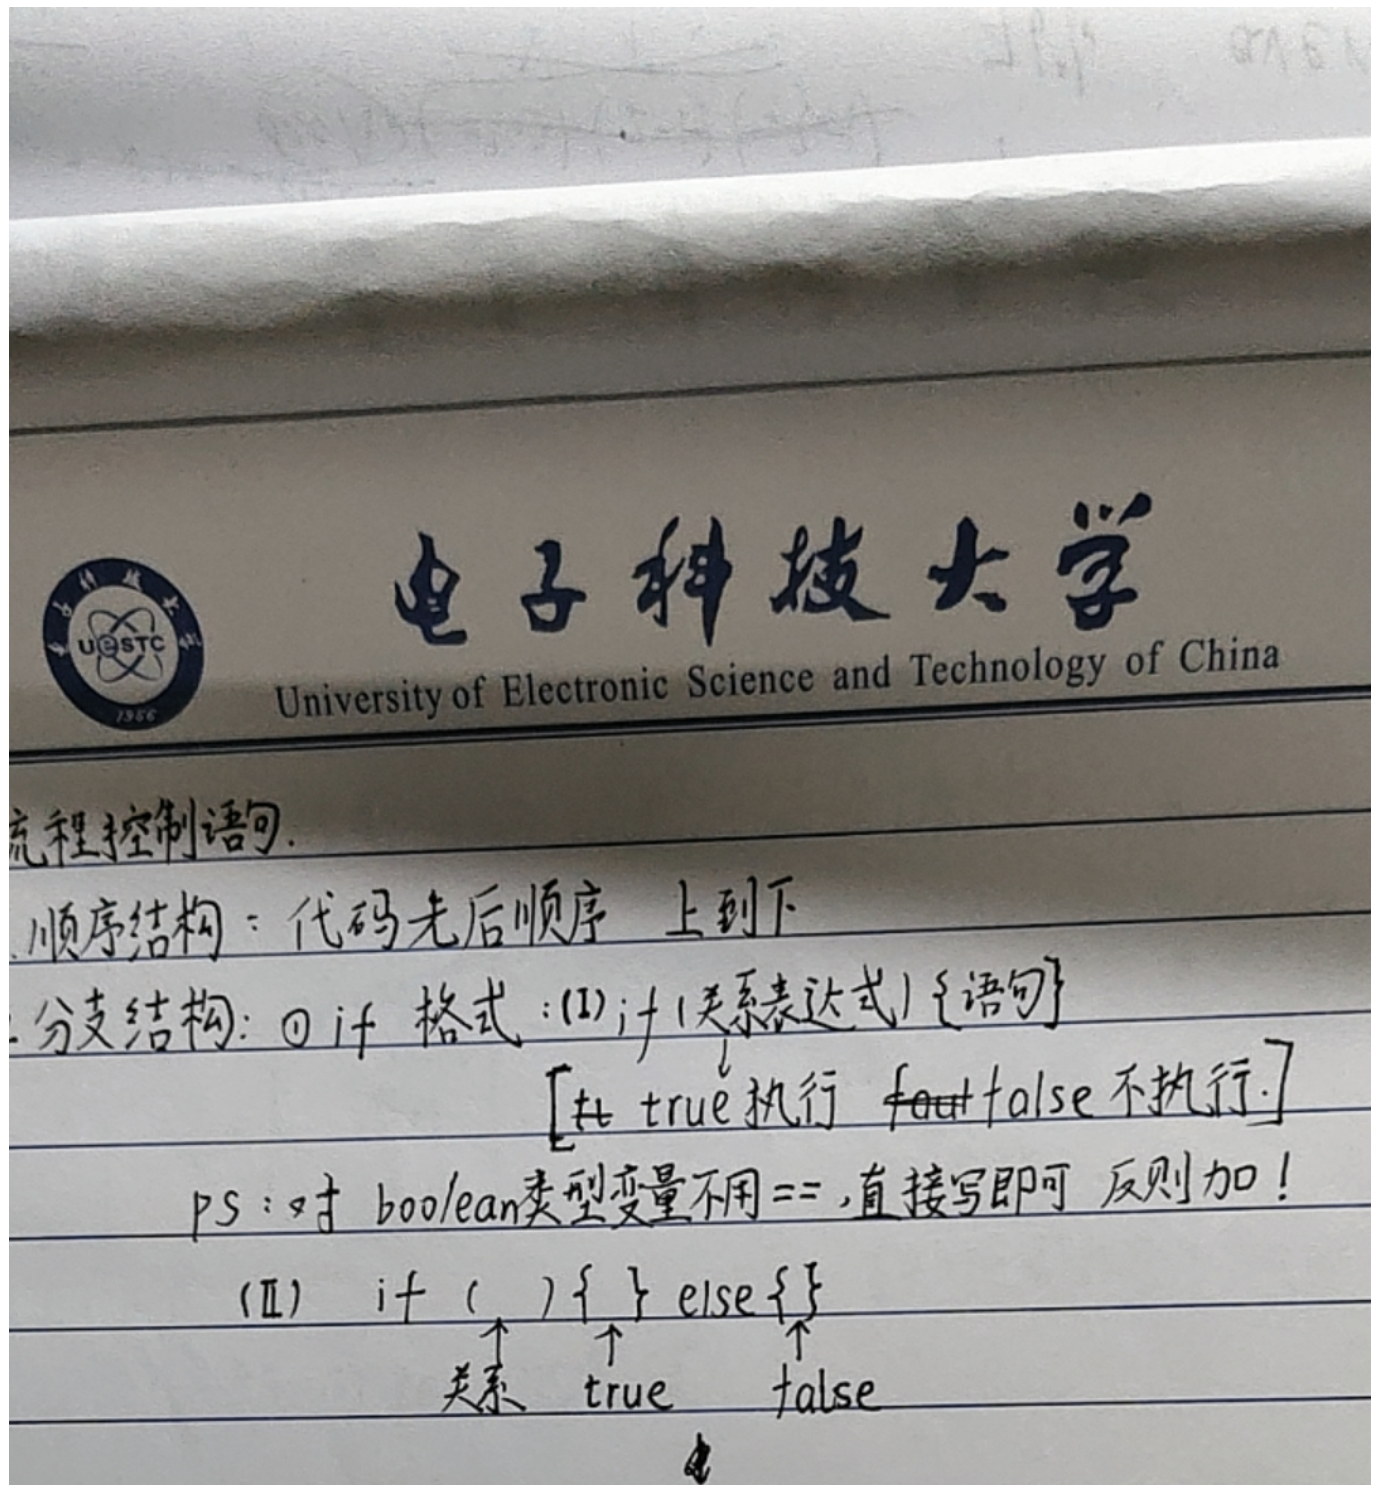 电子科技大学
UESTC
1956
University of Electronic Science and Technology of China
流程控制语句.
.顺序结构：代码先后顺序 上到下
.分支结构：① if 格式：(I) if (关系表达式) {语句}
[true执行 false不执行.]
ps：对boolean类型变量不用==，直接写即可 反则加！
(II) if ( ) { } else { }
↑ ↑ ↑
关系 true false